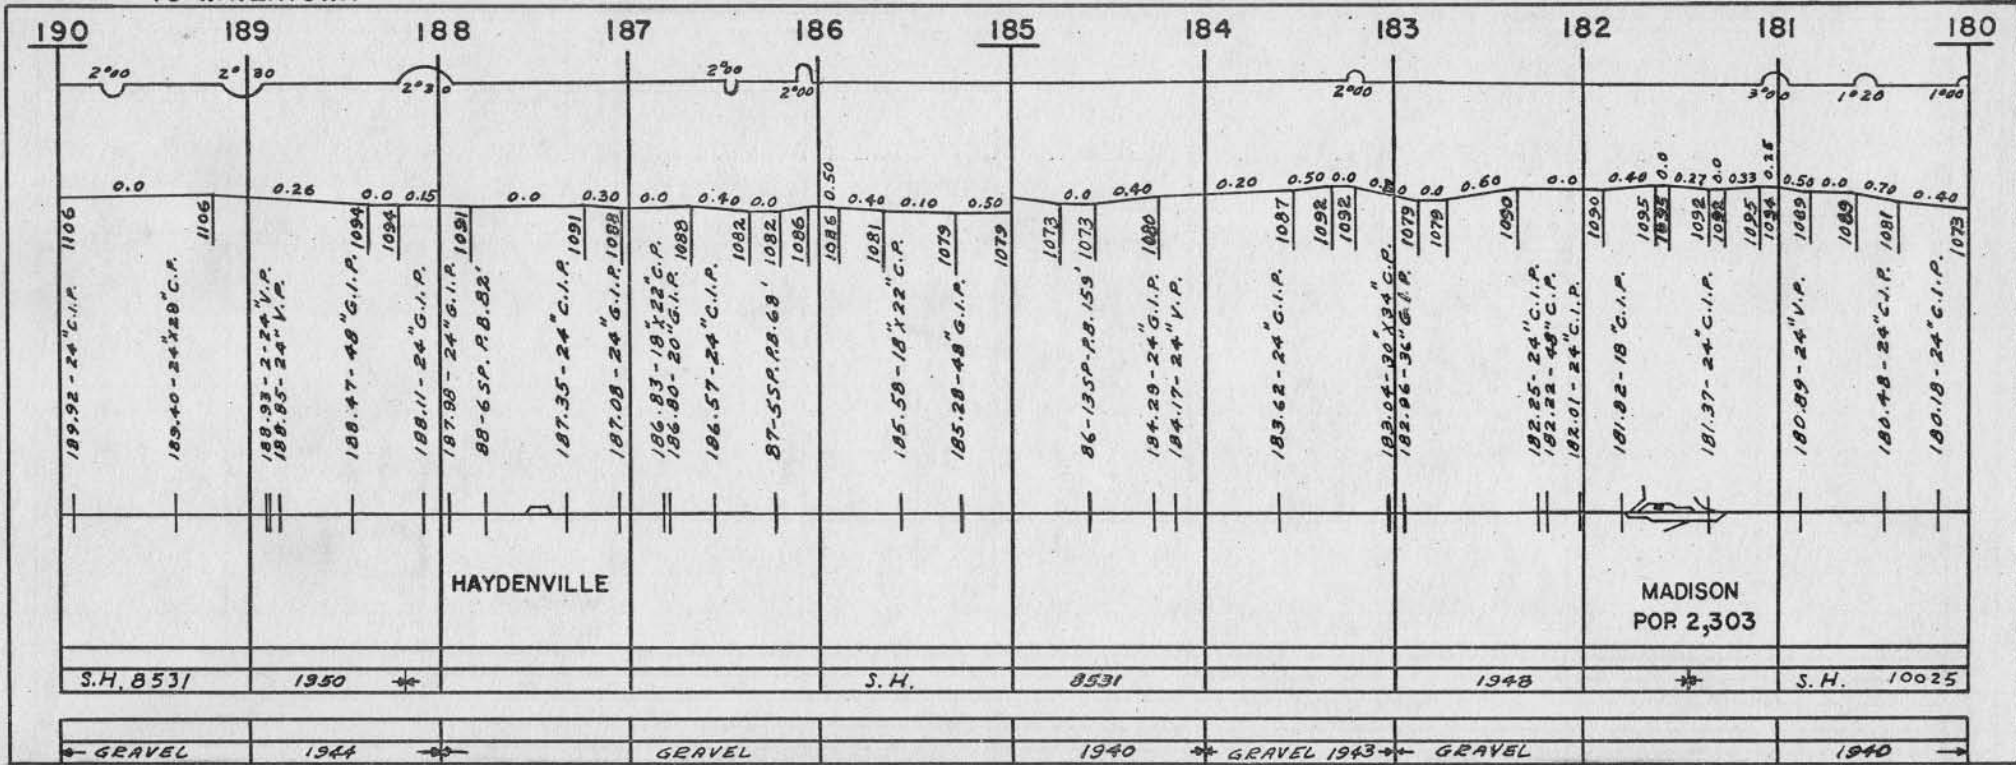 190 189 188 187 186 185 184 183 182 181 180
2°00 2°30 2°30 2°00 2°00 2°00 3°00 1°20 1°00
0.0 0.26 0.0 0.15 0.0 0.30 0.0 0.40 0.0 0.50 0.40 0.10 0.50 0.0 0.40 0.20 0.50 0.0 0.0 0.60 0.0 0.40 0.0 0.27 0.0 0.33 0.25 0.50 0.0 0.70 0.40
1106 1106 1094 1094 1091 1091 1088 1088 1082 1082 1086 1086 1081 1079 1079 1073 1073 1080 1087 1092 1092 1079 1079 1090 1090 1095 1095 1092 1092 1095 1094 1089 1089 1081 1073
189.92-24"C.I.P.
189.40-24"X28"C.P.
188.93-2-24"V.P.
188.85-24"V.P.
188.47-48"G.I.P.
188.11-24"G.I.P.
187.98-24"G.I.P.
88-6SP.P.B.82'
187.35-24"C.I.P.
187.08-24"G.I.P.
186.83-18"X22"C.P.
186.80-20"G.I.P.
186.57-24"C.I.P.
87-5SP.P.B.68'
185.58-18"X22"C.P.
185.28-48"G.I.P.
86-13SP-P.B.159'
184.29-24"G.I.P.
184.17-24"V.P.
183.62-24"C.I.P.
183.04-30"X34"C.P.
182.96-36"G.I.P.
182.25-24"C.I.P.
182.22-48"C.P.
182.01-24"C.I.P.
181.82-18"C.I.P.
181.37-24"C.I.P.
180.89-24"V.P.
180.48-24"C.I.P.
180.18-24"C.I.P.
HAYDENVILLE
MADISON
POP. 2,303
S.H. 8531 1950 S.H. 8531 1948 S.H. 10025
GRAVEL 1944 GRAVEL 1940 GRAVEL 1943 GRAVEL 1940